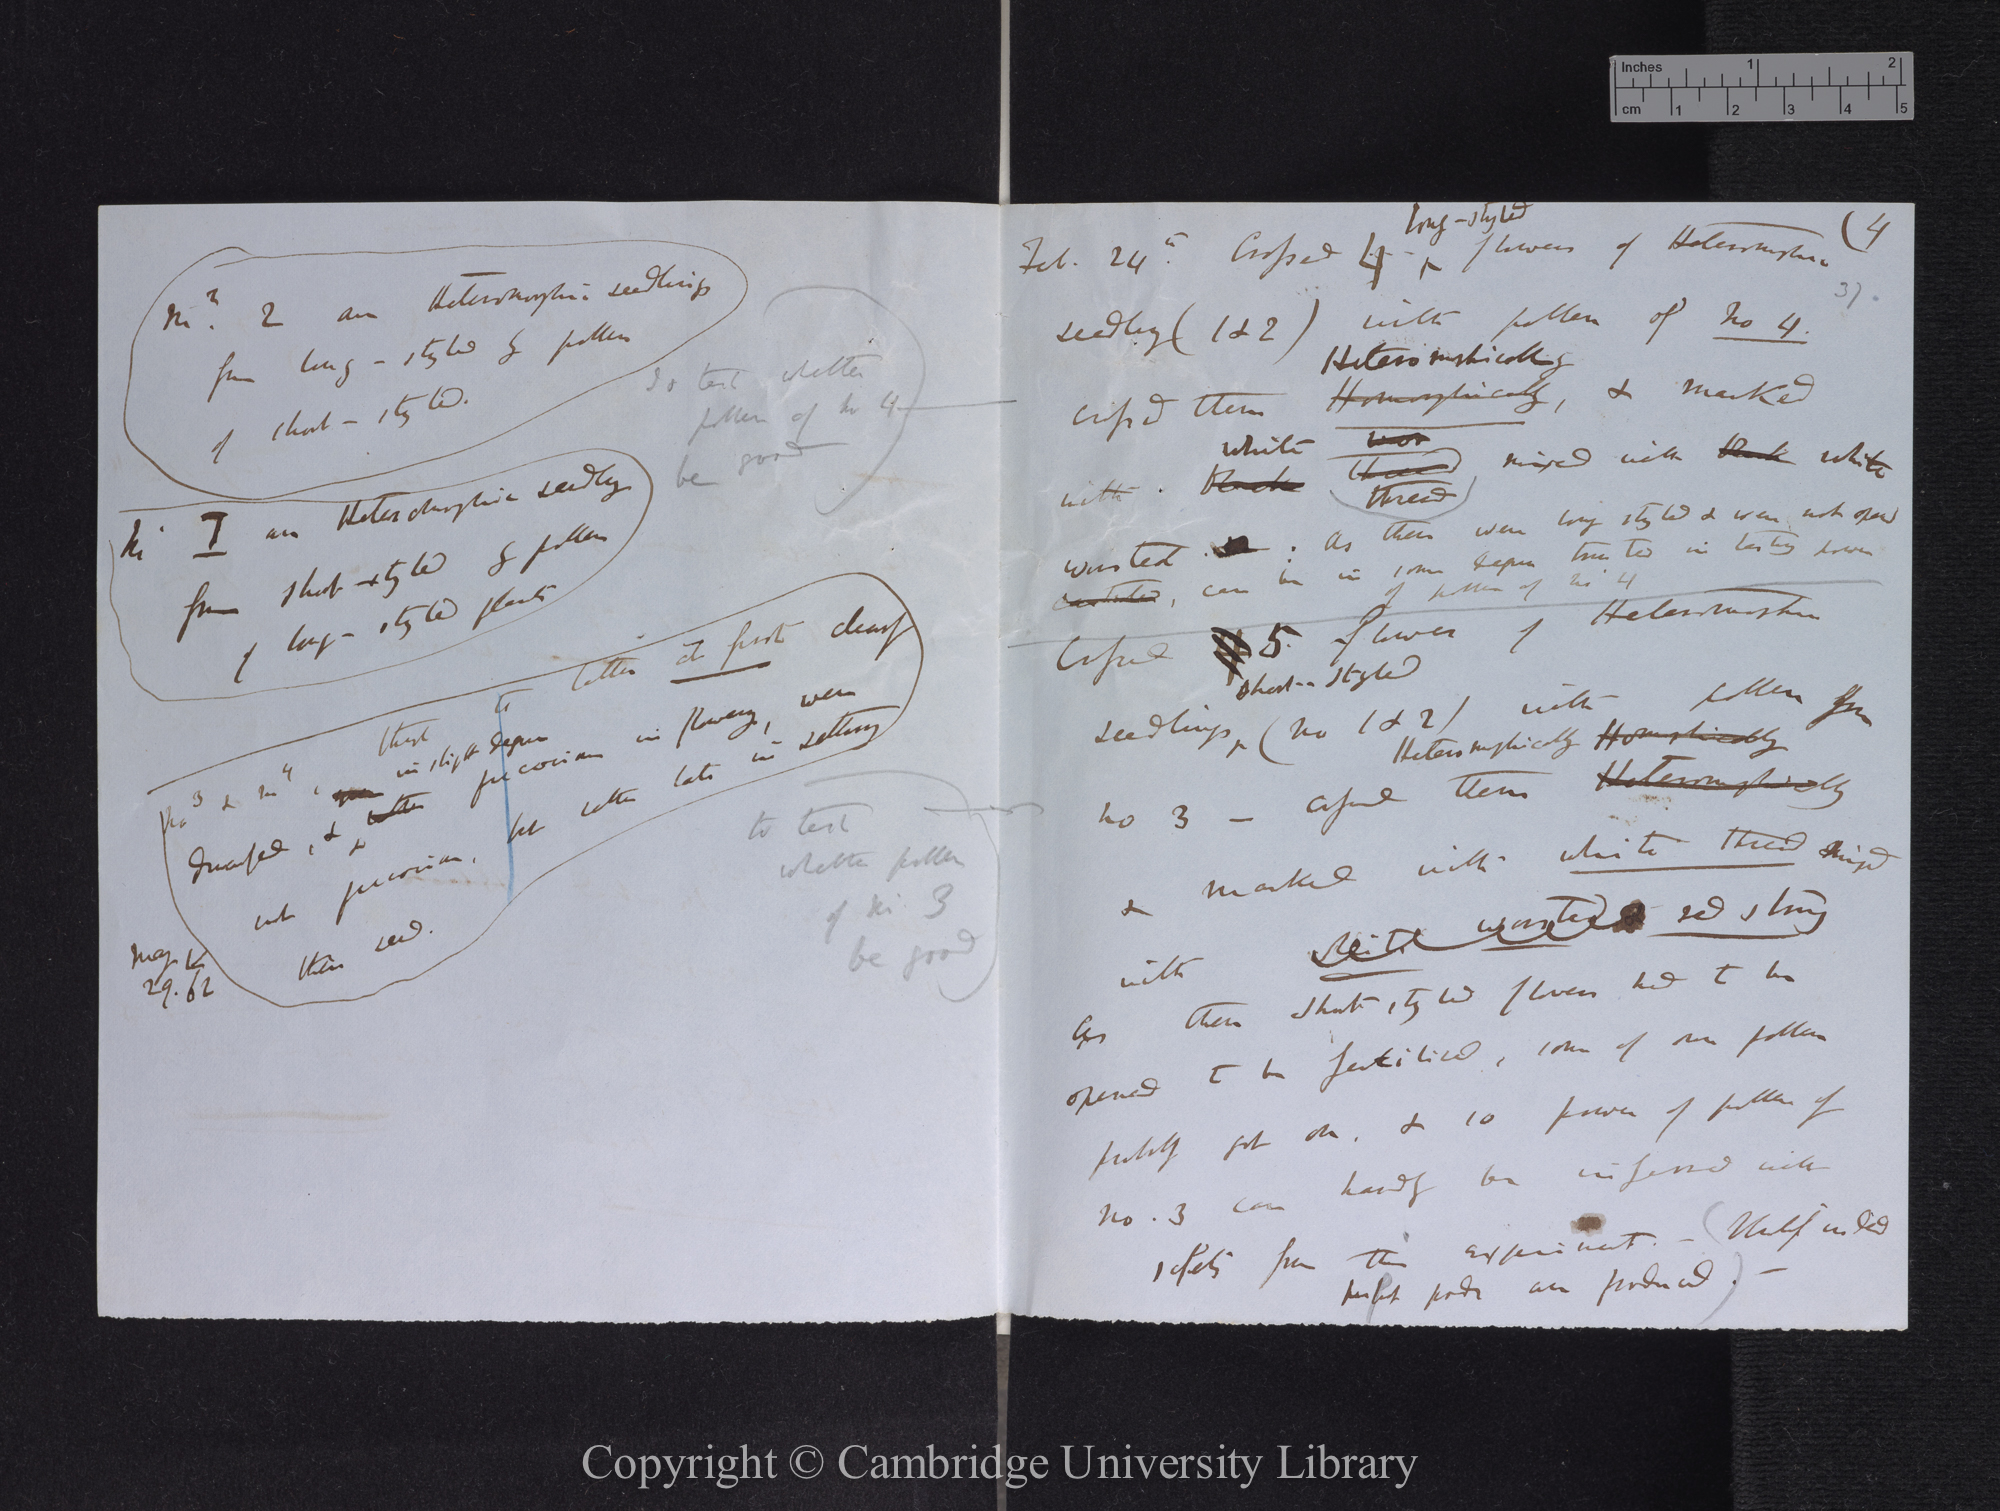 No. 2 are Heteromorphic seedlings
from long-styled by pollen
of short-styled.
to test whether
pollen of No 4
be good
No I are Heteromorphic seedlings
from short-styled by pollen
of long-styled plants
latter at first dwarf
these
No 3 & No 4, in slight degree
dwarfed, & rather precocious in flowering, were
not precocious, but rather late in setting
their seed.
May
29. 62
to test
whether pollen
of No. 3
be good
long-styled
(4
Feb. 24th Crossed 4 flowers of Heteromorphic
3)
seedling (1 & 2) with pollen of No 4.
Heteromorphically
crossed them Homomorphically, & marked
white wor
with Black thread mixed with Black white
thread
worsted. As these were long styled & were not open
castrated, can be in some degree trusted in testing power
of pollen of No 4
Crossed 5. flowers of Heteromorphic
short-styled
seedlings, (No 1 & 2) with pollen from
Heteromorphically Homorphically
No 3 — crossed them Heteromorphically
& marked with white thread mixed
with white worsted & red string
As these short-styled flowers had to be
opened to be fertilised, some of own pollen
probably got on, & so power of pollen of
No. 3 can hardly be inferred with
safety from this experiment. — (Half indeed
perfect pods are produced). —
Inches 1 2
cm 1 2 3 4 5
Copyright © Cambridge University Library